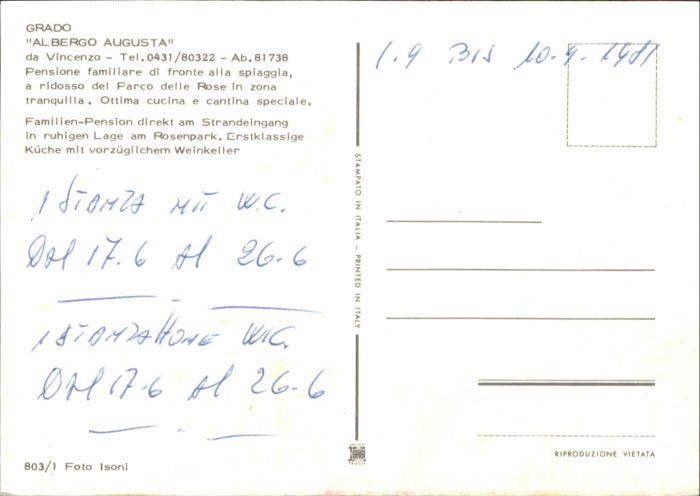 GRADO
"ALBERGO AUGUSTA"
da Vincenzo - Tel.0431/80322 - Ab.81738
Pensione familiare di fronte alla spiaggia,
a ridosso del Parco delle Rose in zona
tranquilla. Ottima cucina e cantina speciale.
Familien-Pension direkt am Strandeingang
in ruhigen Lage am Rosenpark. Erstklassige
Küche mit vorzüglichem Weinkeller
1 STANZA MIT W.C.
DAL 17.6 AL 26-6
1 STANZA HONE W.C.
DAL 17-6 AL 26-6
803/1 Foto Isoni
STAMPATO IN ITALIA - PRINTED IN ITALY
1.9 BIS 10-9-1981
RIPRODUZIONE VIETATA